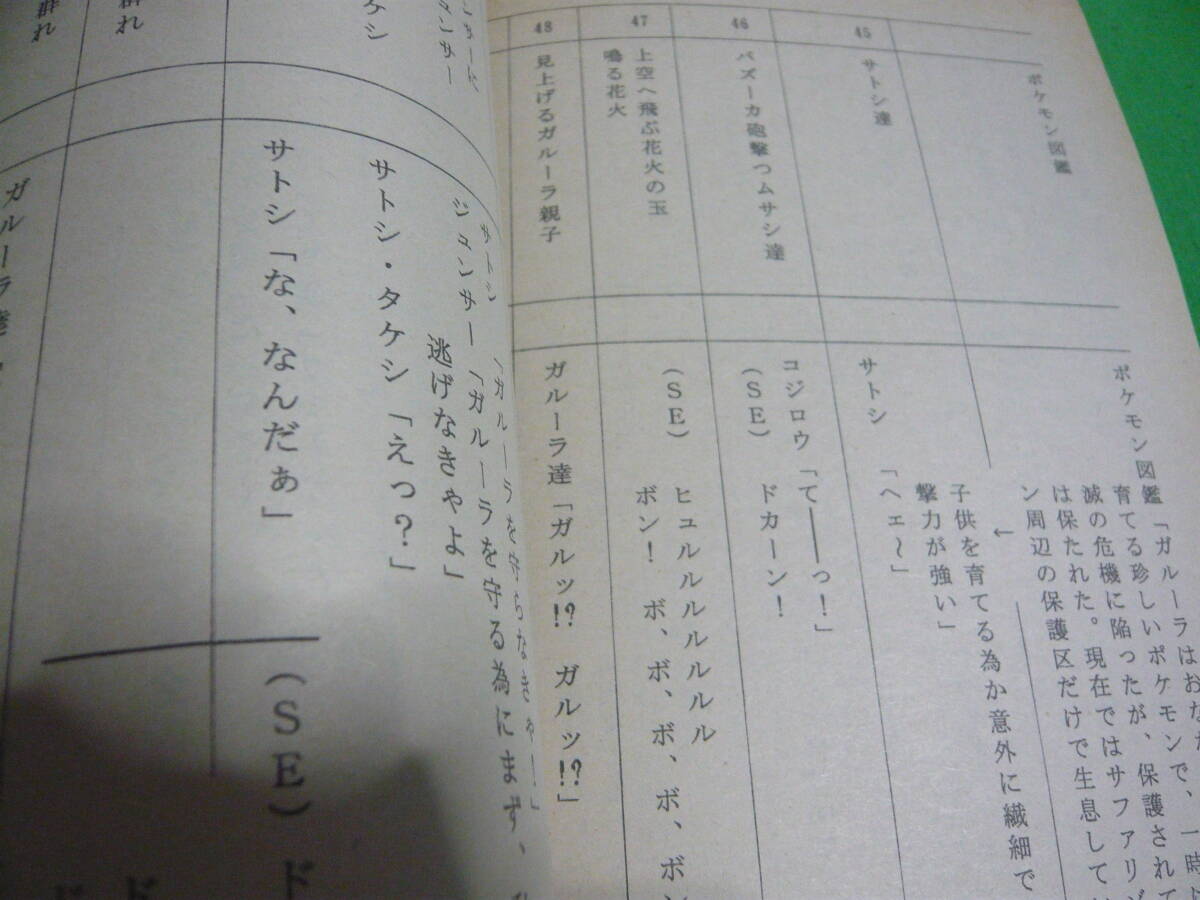 ポケモン図鑑
ポケモン図鑑「ガルーラはおなか
育てる珍しいポケモンで、一時
滅の危機に陥ったが、保護されて
は保たれた。現在ではサファリゾ
ン周辺の保護区だけで生息して
←
子供を育てる為か意外に繊細で
撃力が強い」
45
サトシ達
サトシ「ヘェ～」
46
バズーカ砲撃つムサシ達
コジロウ「て――っ！」
(SE)ドカーン！
47
上空へ飛ぶ花火の玉
鳴る花火
(SE)ヒュルルルルルルル
ボン！ボ、ボ、ボ、ボ、ボン
48
見上げるガルーラ親子
ガルーラ達「ガルッ!? ガルッ!?」
ンサーに
サトシ「ガルーラを守らなきゃ―」
ジュンサー「ガルーラを守る為にまず、
逃げなきゃよ」
ケシ
サトシ・タケシ「えっ？」
サトシ「な、なんだぁ」
(SE)ド
群れ
ド
群れ
ガルーラ達
ド